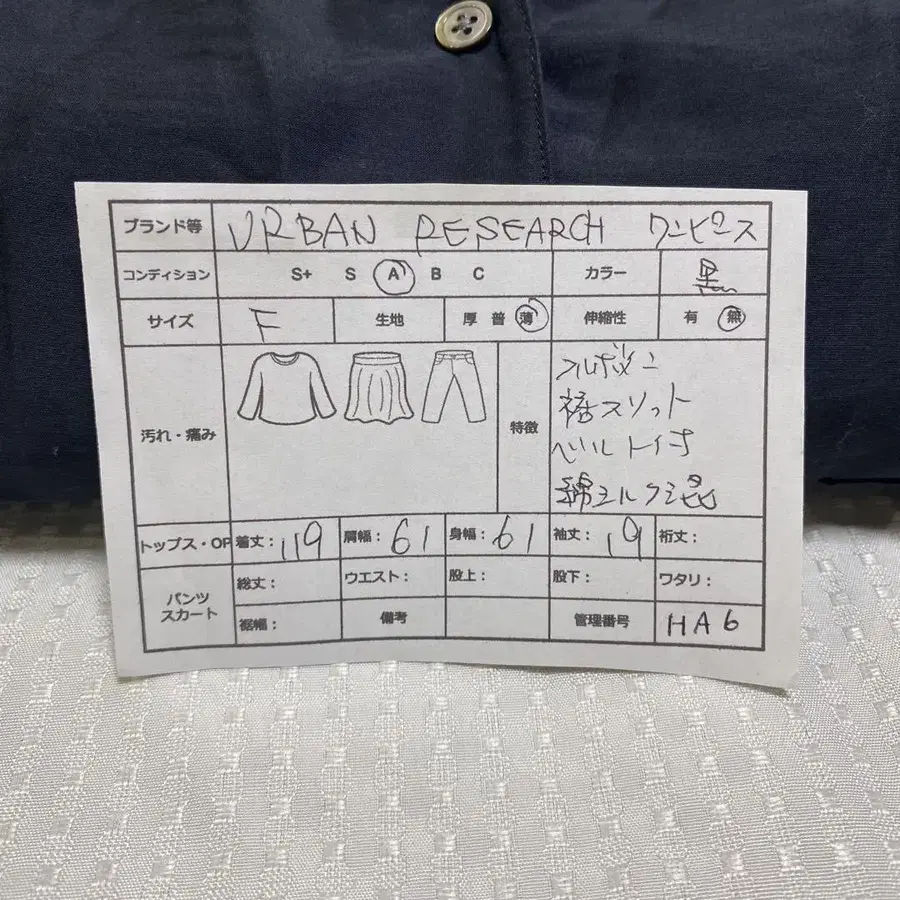 ブランド等 URBAN RESEARCH ワンピース
コンディション S+ S A B C カラー 黒
サイズ F 生地 厚 普 薄 伸縮性 有 無
汚れ・痛み 特徴 フルボタン
裾スリット
ベルト付き
綿シルク混
トップス・OP 着丈: 119 肩幅: 61 身幅: 61 袖丈: 19 裄丈:
パンツ スカート 総丈: ウエスト: 股上: 股下: ワタリ:
裾幅: 備考 管理番号 HA6